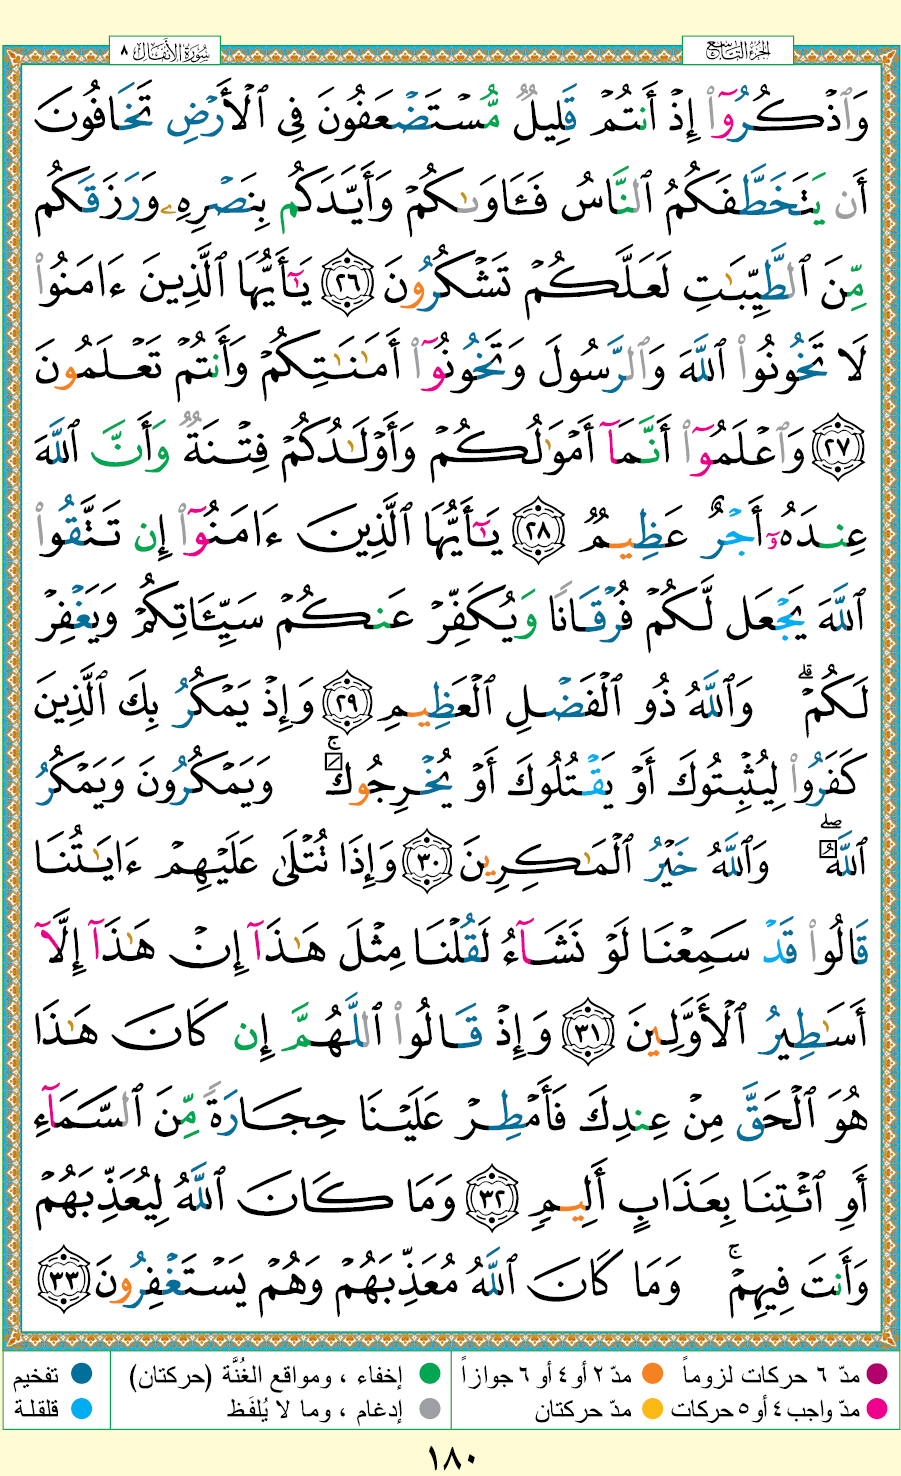 سُورَةُ الأَنفَال ٨
الجُزءُ التَّاسِع
وَٱذْكُرُوٓا۟ إِذْ أَنتُمْ قَلِيلٌ مُّسْتَضْعَفُونَ فِى ٱلْأَرْضِ تَخَافُونَ
أَن يَتَخَطَّفَكُمُ ٱلنَّاسُ فَـَٔاوَىٰكُمْ وَأَيَّدَكُم بِنَصْرِهِۦ وَرَزَقَكُم
مِّنَ ٱلطَّيِّبَـٰتِ لَعَلَّكُمْ تَشْكُرُونَ ٢٦ يَـٰٓأَيُّهَا ٱلَّذِينَ ءَامَنُوا۟
لَا تَخُونُوا۟ ٱللَّهَ وَٱلرَّسُولَ وَتَخُونُوٓا۟ أَمَـٰنَـٰتِكُمْ وَأَنتُمْ تَعْلَمُونَ
٢٧ وَٱعْلَمُوٓا۟ أَنَّمَآ أَمْوَٰلُكُمْ وَأَوْلَـٰدُكُمْ فِتْنَةٌ وَأَنَّ ٱللَّهَ
عِندَهُۥٓ أَجْرٌ عَظِيمٌ ٢٨ يَـٰٓأَيُّهَا ٱلَّذِينَ ءَامَنُوٓا۟ إِن تَتَّقُوا۟
ٱللَّهَ يَجْعَل لَّكُمْ فُرْقَانًا وَيُكَفِّرْ عَنكُمْ سَيِّـَٔاتِكُمْ وَيَغْفِرْ
لَكُمْ ۗ وَٱللَّهُ ذُو ٱلْفَضْلِ ٱلْعَظِيمِ ٢٩ وَإِذْ يَمْكُرُ بِكَ ٱلَّذِينَ
كَفَرُوا۟ لِيُثْبِتُوكَ أَوْ يَقْتُلُوكَ أَوْ يُخْرِجُوكَ ۚ وَيَمْكُرُونَ وَيَمْكُرُ
ٱللَّهُ ۖ وَٱللَّهُ خَيْرُ ٱلْمَـٰكِرِينَ ٣٠ وَإِذَا تُتْلَىٰ عَلَيْهِمْ ءَايَـٰتُنَا
قَالُوا۟ قَدْ سَمِعْنَا لَوْ نَشَآءُ لَقُلْنَا مِثْلَ هَـٰذَآ إِنْ هَـٰذَآ إِلَّآ
أَسَـٰطِيرُ ٱلْأَوَّلِينَ ٣١ وَإِذْ قَالُوا۟ ٱللَّهُمَّ إِن كَانَ هَـٰذَا
هُوَ ٱلْحَقَّ مِنْ عِندِكَ فَأَمْطِرْ عَلَيْنَا حِجَارَةً مِّنَ ٱلسَّمَآءِ
أَوِ ٱئْتِنَا بِعَذَابٍ أَلِيمٍ ٣٢ وَمَا كَانَ ٱللَّهُ لِيُعَذِّبَهُمْ
وَأَنتَ فِيهِمْ ۚ وَمَا كَانَ ٱللَّهُ مُعَذِّبَهُمْ وَهُمْ يَسْتَغْفِرُونَ ٣٣
مدّ ٦ حركات لزوماً مدّ ٢ أو ٤ أو ٦ جوازاً إخفاء ، ومواقع الغُنَّة (حركتان) تفخيم
مدّ واجب ٤ أو ٥ حركات مدّ حركتان إدغام ، وما لا يُلفَظ قلقلة
١٨٠